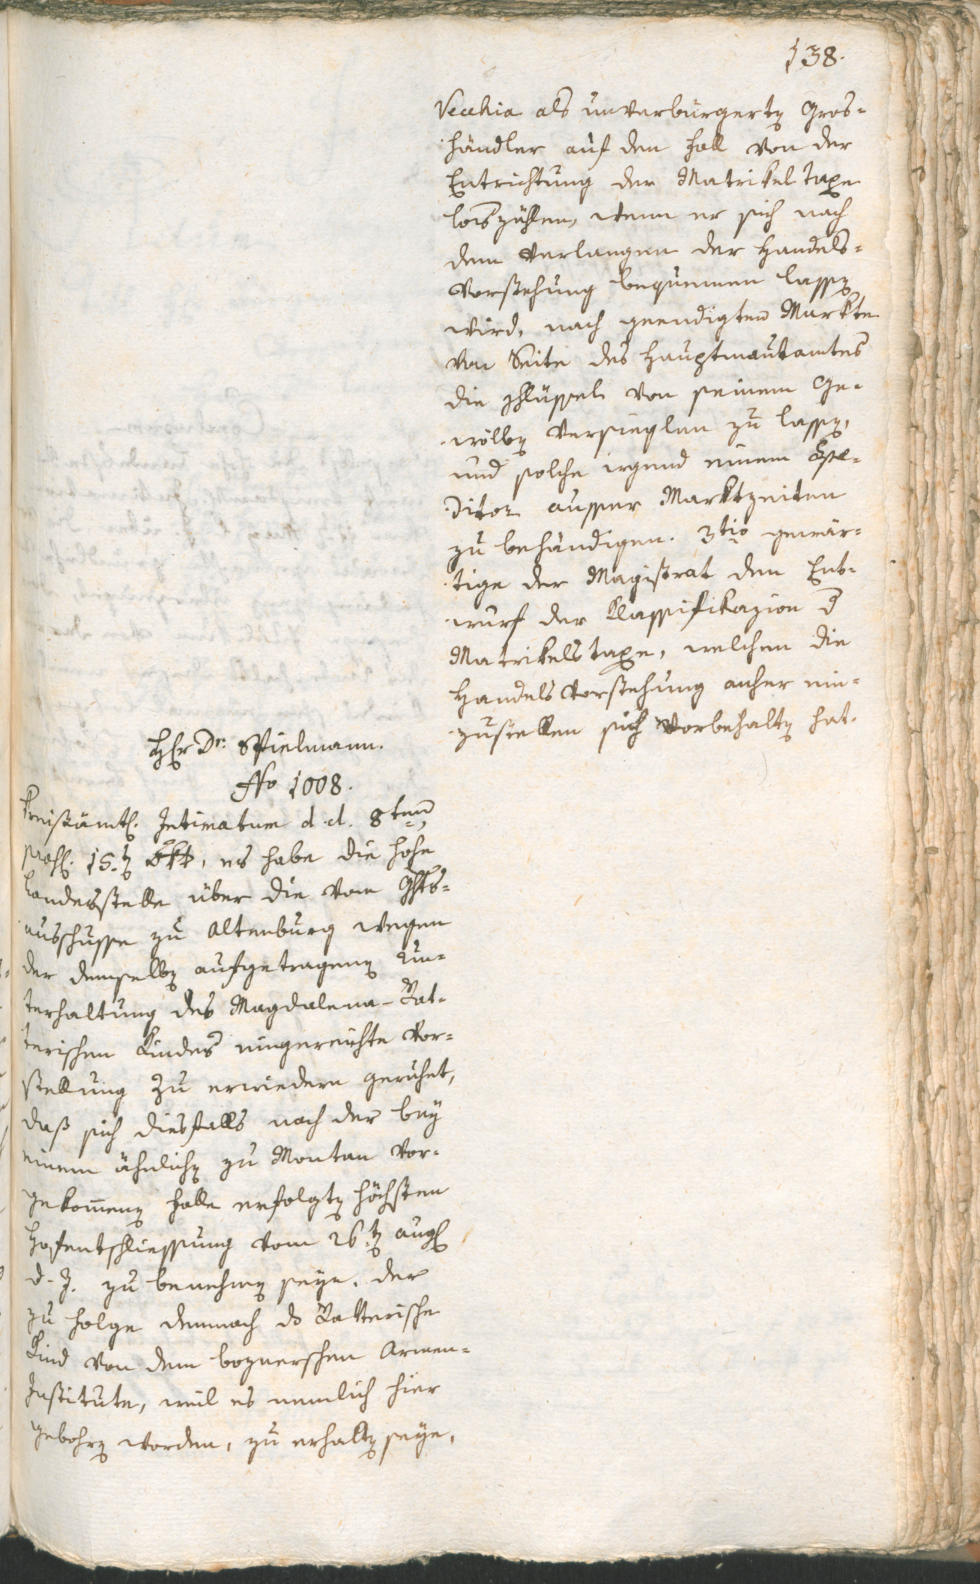 138.
Vecchia als unverbürgertn Gros-
händler auf den Fall von der
Entrichtung der Matrikel Taxe
loszählen, wenn er sich nach
dem Verlangen der Handels-
vorstehung bequemen lassn
wird, nach geendigten Markte
von Seite des Hauptmautamtes
die Schlüssel von seinem Ge-
wölbn versieglen zu lassn,
und solche irgend einem Spe-
ditor ausser Marktzeiten
zu behändigen. 3tio gewär-
tige der Magistrat den Ent-
wurf der Klassifikazion d
Matrikelstaxe, welchen die
Handelsvorstehung anher ein-
zustellen sich vorbehaltn hat.
HEr Dr. Spielmann.
No 1008.
Kreisämtl. Intimatum d. d. 8ten,
praes. 15.tn 8bt, es habe die hohe
Landesstelle über die vom Ghts-
ausschusse zu Altenburg wegen
der demselbn aufgetragenn Un-
terhaltung des Magdalena-Rat-
terischen Kindes eingereichte Vor-
stellung zu erwiedern geruhet,
daß sich diesfalls nach der bey
einem ähnlichn zu Montan vor-
gekom̄enn Falle erfolgtn höchsten
Hofentschliessung vom 26.tn aug
d. J. zu benehmn seye. Der
zu Folge demnach ds Ratterische
Kind von dem boznerschen Armen-
Institute, weil es nemlich hier
gebohrn worden, zu erhaltn seye,